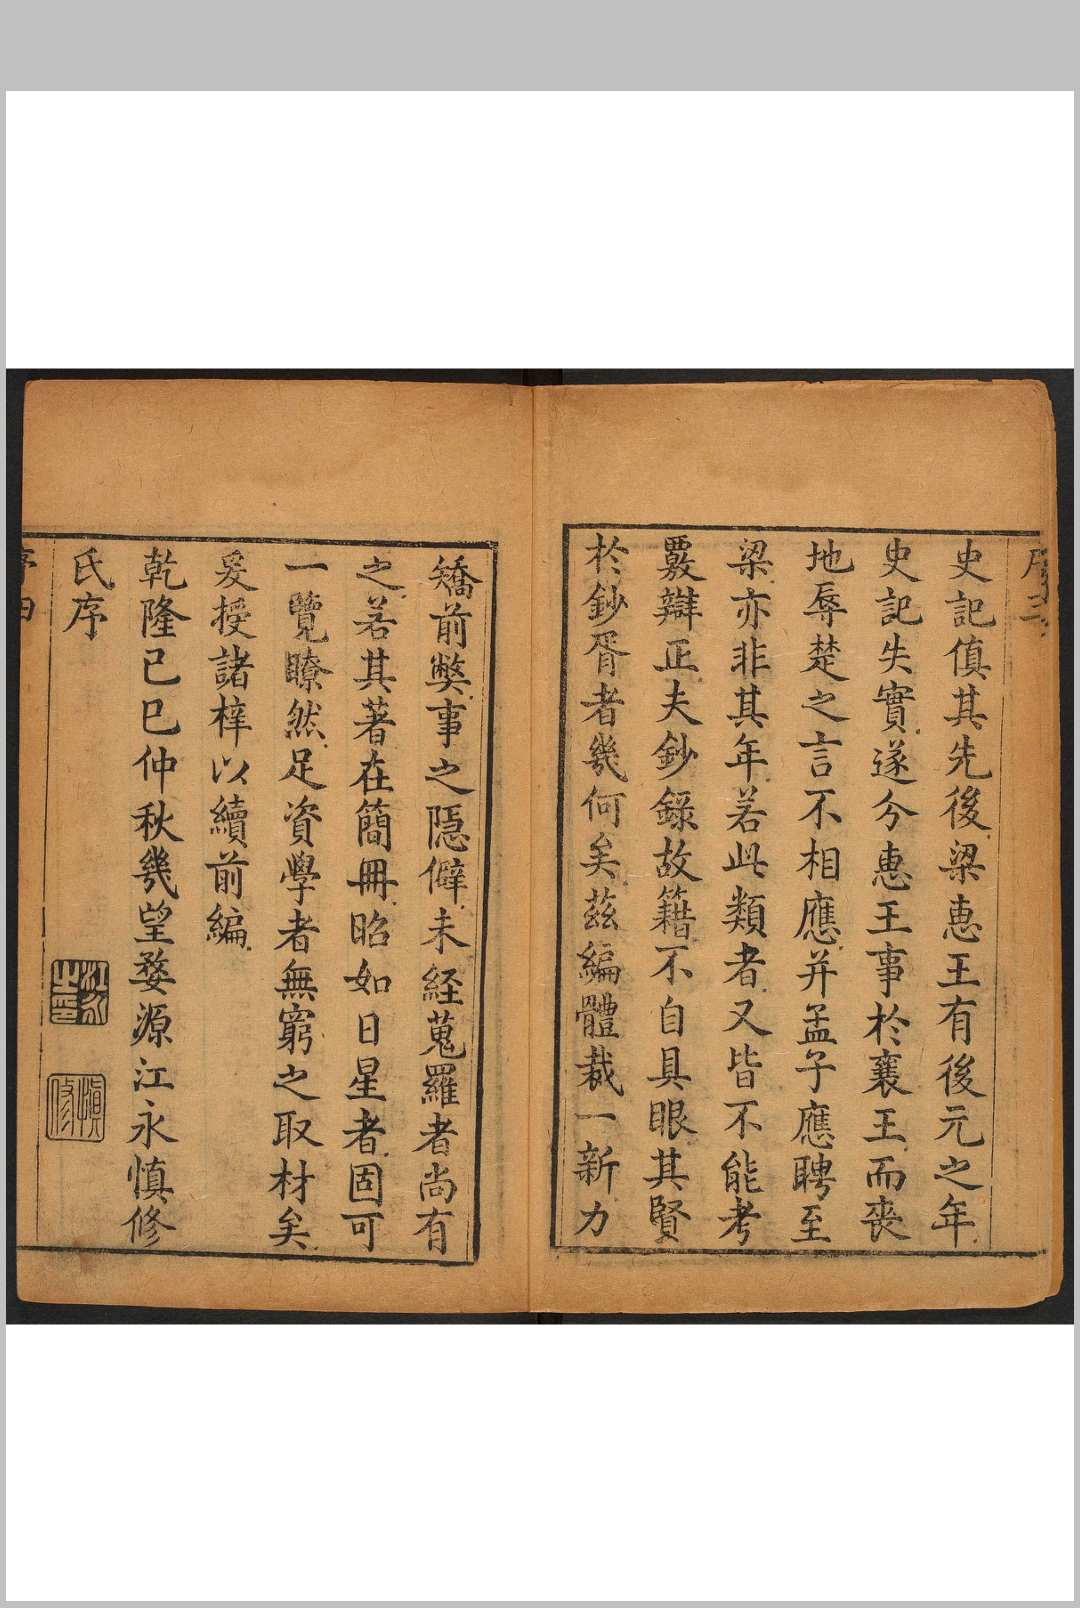 序三
史記傎其先後梁惠王有後元之年
史記失實遂分惠王事於襄王而喪
地辱楚之言不相應并孟子應聘至
梁亦非其年若此類者又皆不能考
覈辯正夫鈔錄故籍不自具眼其賢
於鈔胥者幾何矣茲編體裁一新力
矯前獘事之隱僻未經蒐羅者尚有
之若其著在簡冊昭如日星者固可
一覽瞭然足資學者無窮之取材矣
爰授諸梓以續前編
乾隆己巳仲秋幾望婺源江永慎修
氏序
江永之印
慎修
序四